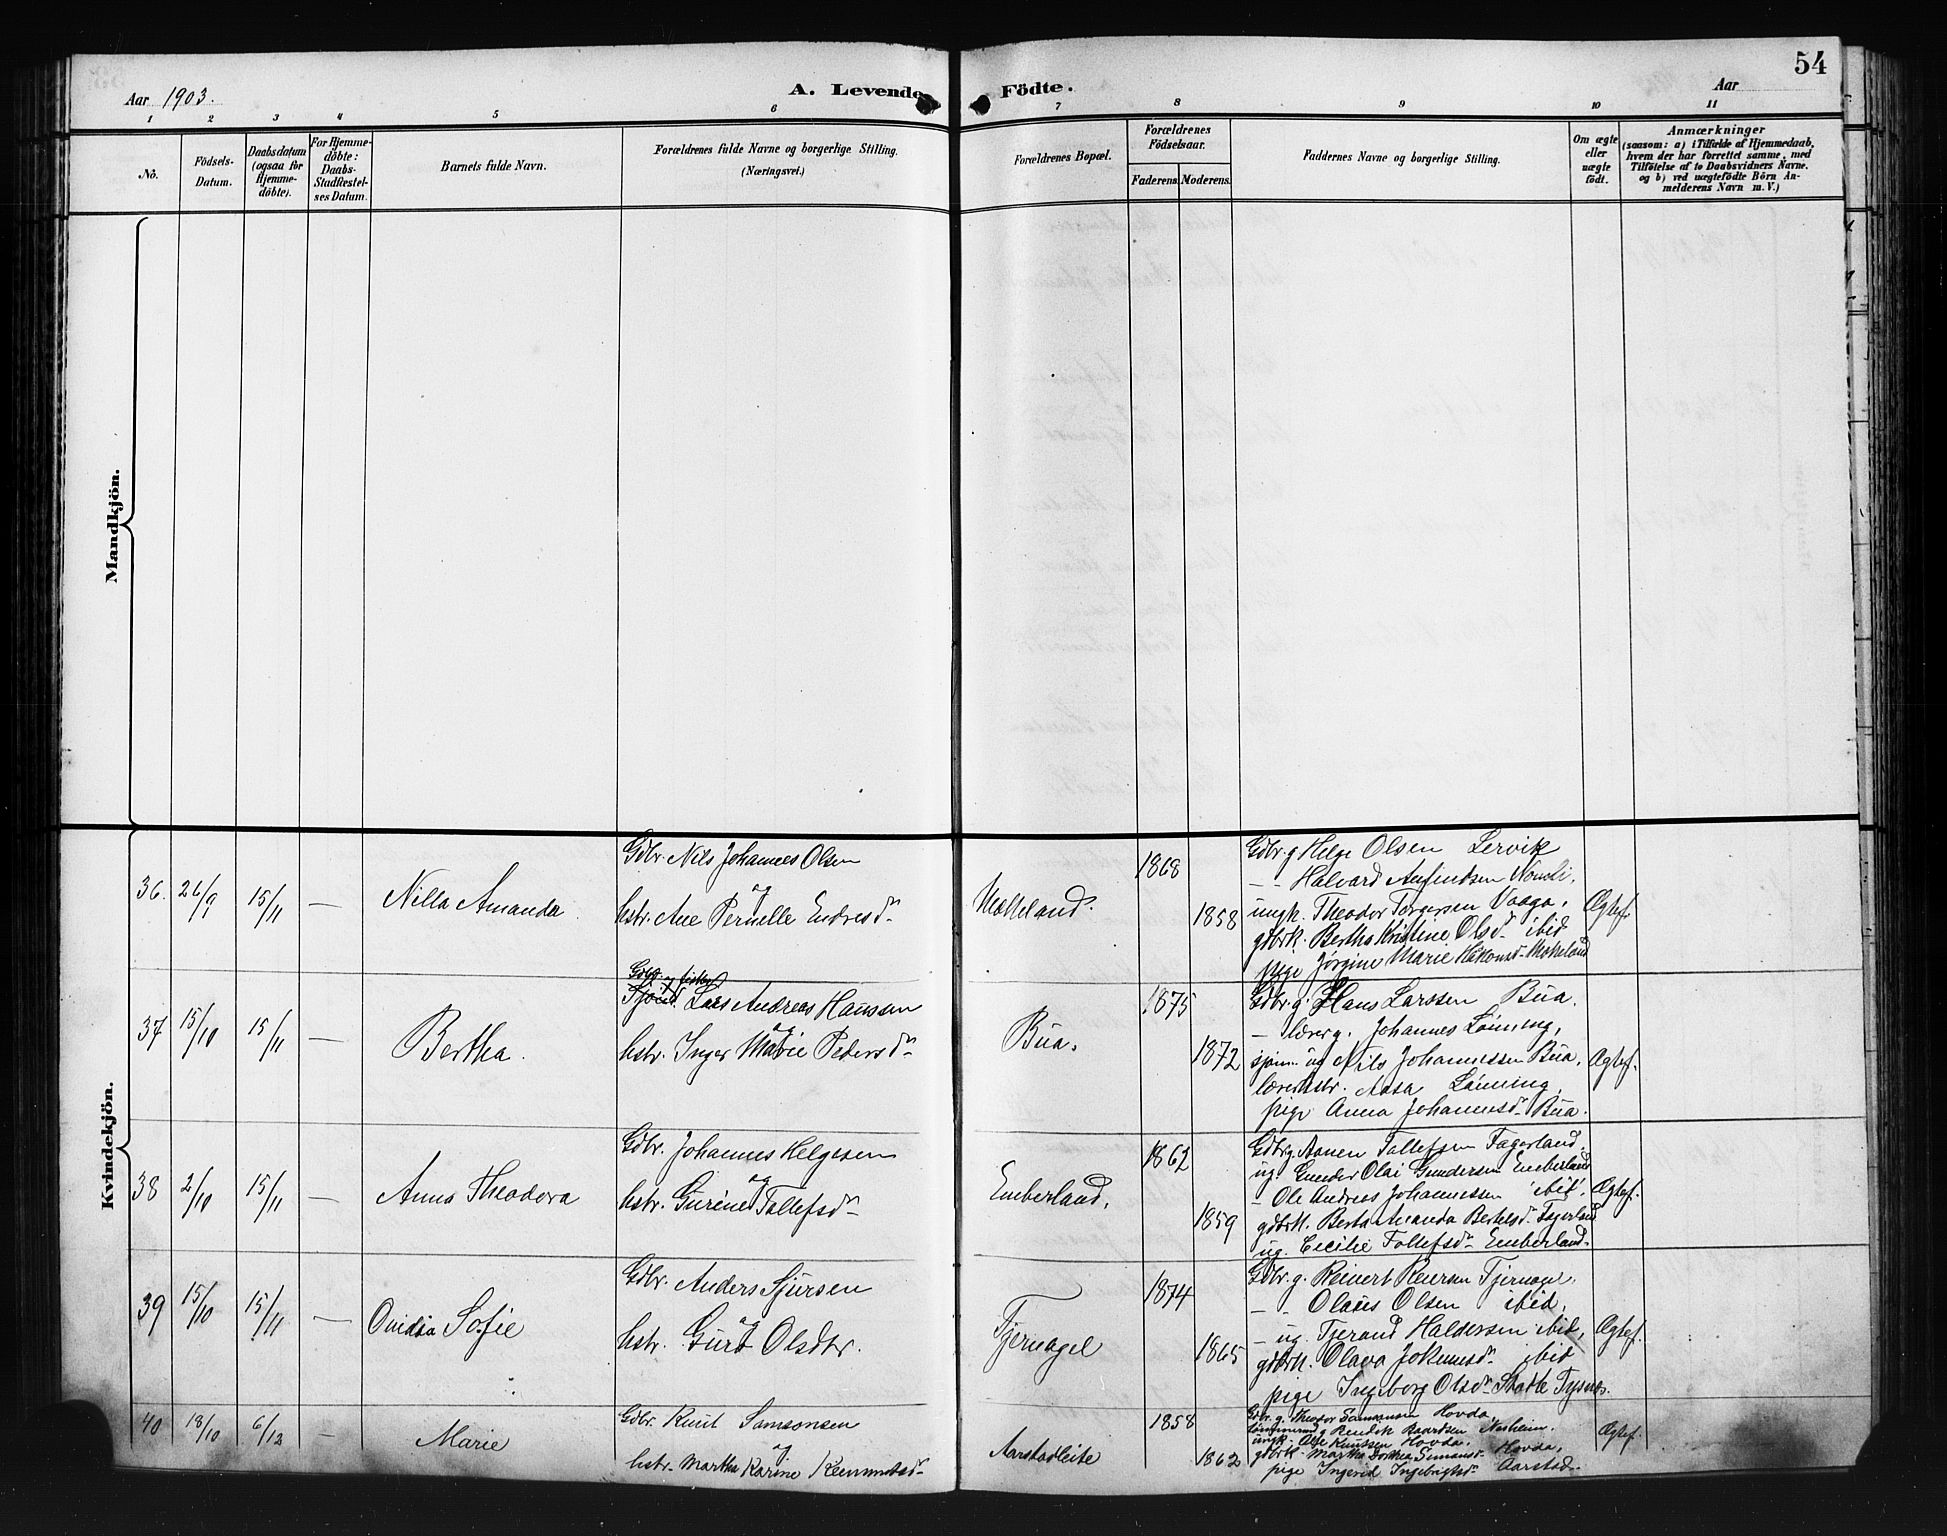 54
Aar 1903.
A. Levende Födte.
Aar
1 2 3 4 5 6 7 8 9 10 11
No.
Födsels-Datum.
Daabsdatum (ogsaa for Hjemme-döbte).
For Hjemme-döbte: Daabs-Stadfæstel-ses Datum.
Barnets fulde Navn.
Forældrenes fulde Navne og borgerlige Stilling. (Næringsvei.)
Forældrenes Bopæl.
Forældrenes Födselsaar.
Faderens. Moderens.
Faddernes Navne og borgerlige Stilling.
Om ægte eller uægte födt.
Anmærkninger
(saasom: a) i Tilfælde af Hjemmedaab,
hvem der har forrettet samme, med
Tilföielse af to Daabsvidners Navne.
og b) ved uægtefödte Börn An-
melderens Navn m. V.)
Mandkjön.
Kvindekjön.
36. 26/9 15/11 — Nilla Amanda.
Gdbr. Nils Johannes Olsen
og
hstr. Ane Pernille Endresdr
Mokeland.
1868
1858
Gdbr. g Helge Olsen Lervik
— — Halvard Aufindsen
ungk. Theodor Torgersen Vaaga,
gdbrk. Bertha Kristine Olsdr ibid
pige Jørgine Marie Håkonsdr Mokeland
Ægtef.
37 15/10 15/11 — Bertha.
Gdbr. og fisker
Lars Andreas Hanssen
og
hstr. Inger Marie Pedersdr
Bua.
1875
1872
Gdbr. g. Hans Larssen Bua.
— lærer g. Johannes Lønning,
sjøm. ug Nils Johannessen Bua.
lærerhstr. Aasa Lønning,
pige Anna Johannesdr Bua.
Ægtef.
38 2/10 15/11 — Anna Theodora
Gdbr. Johannes Helgesen
og
hstr. Gurine Tollefsdr
Emberland.
1862
1859
Gdbr g. Aanen Tollefsen Fagerland.
ug. Gunder Olai Gundersen Emberland
— Ole Andreas Johannessen ibid,
gdbrk. Berta Amanda Bertelsdr Fagerland
ug. Cecilie Tollefsdr Emberland
Ægtef.
39 15/10 15/11 — Ovidia Sofie
Gdbr. Anders Sjursen
og
hstr. Guro Olsdtr.
Tjernagel
1874
1865
Gdbr. g. Reinert Reiersen Tjernagel.
— — Olaus Olsen ibid,
— ug. Tjerand Haldorsen ibid,
gdbrk. Olava Jokumsdr ibid
pige Ingeborg Olsdr Tysnes.
Ægtef.
40 18/10 6/12 — Marie
Gdbr. Knut Samsonsen
og
hstr. Martha Karine
Aarstadleite
1858
1862
Gdbr. g. Theodor Samsonsen Hovda,
g Rendik Baardsen Nesheim.
ungk. Ole Knutssen Hovda,
gdbrk. Martha Dorthea Simonsdr Hovda,
pige Ingerid Ingebrigtsdr Aarstad
Ægtef.